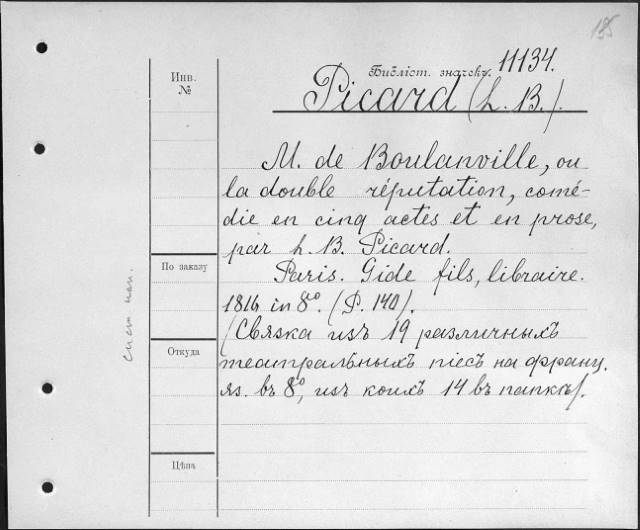 195
Инв.
№
Библіот. значекъ. 11134.
Picard (L. B.).
M. de Boulanville, ou
la double réputation, comé-
die en cinq actes et en prose,
par L. B. Picard.
По заказу
Paris. Gide fils, libraire.
1816 in 8º. (P. 140).
(Связка изъ 19 различныхъ
Откуда
театральныхъ піесъ на франц.
яз. въ 8º, изъ коихъ 14 въ папкѣ).
Цѣна